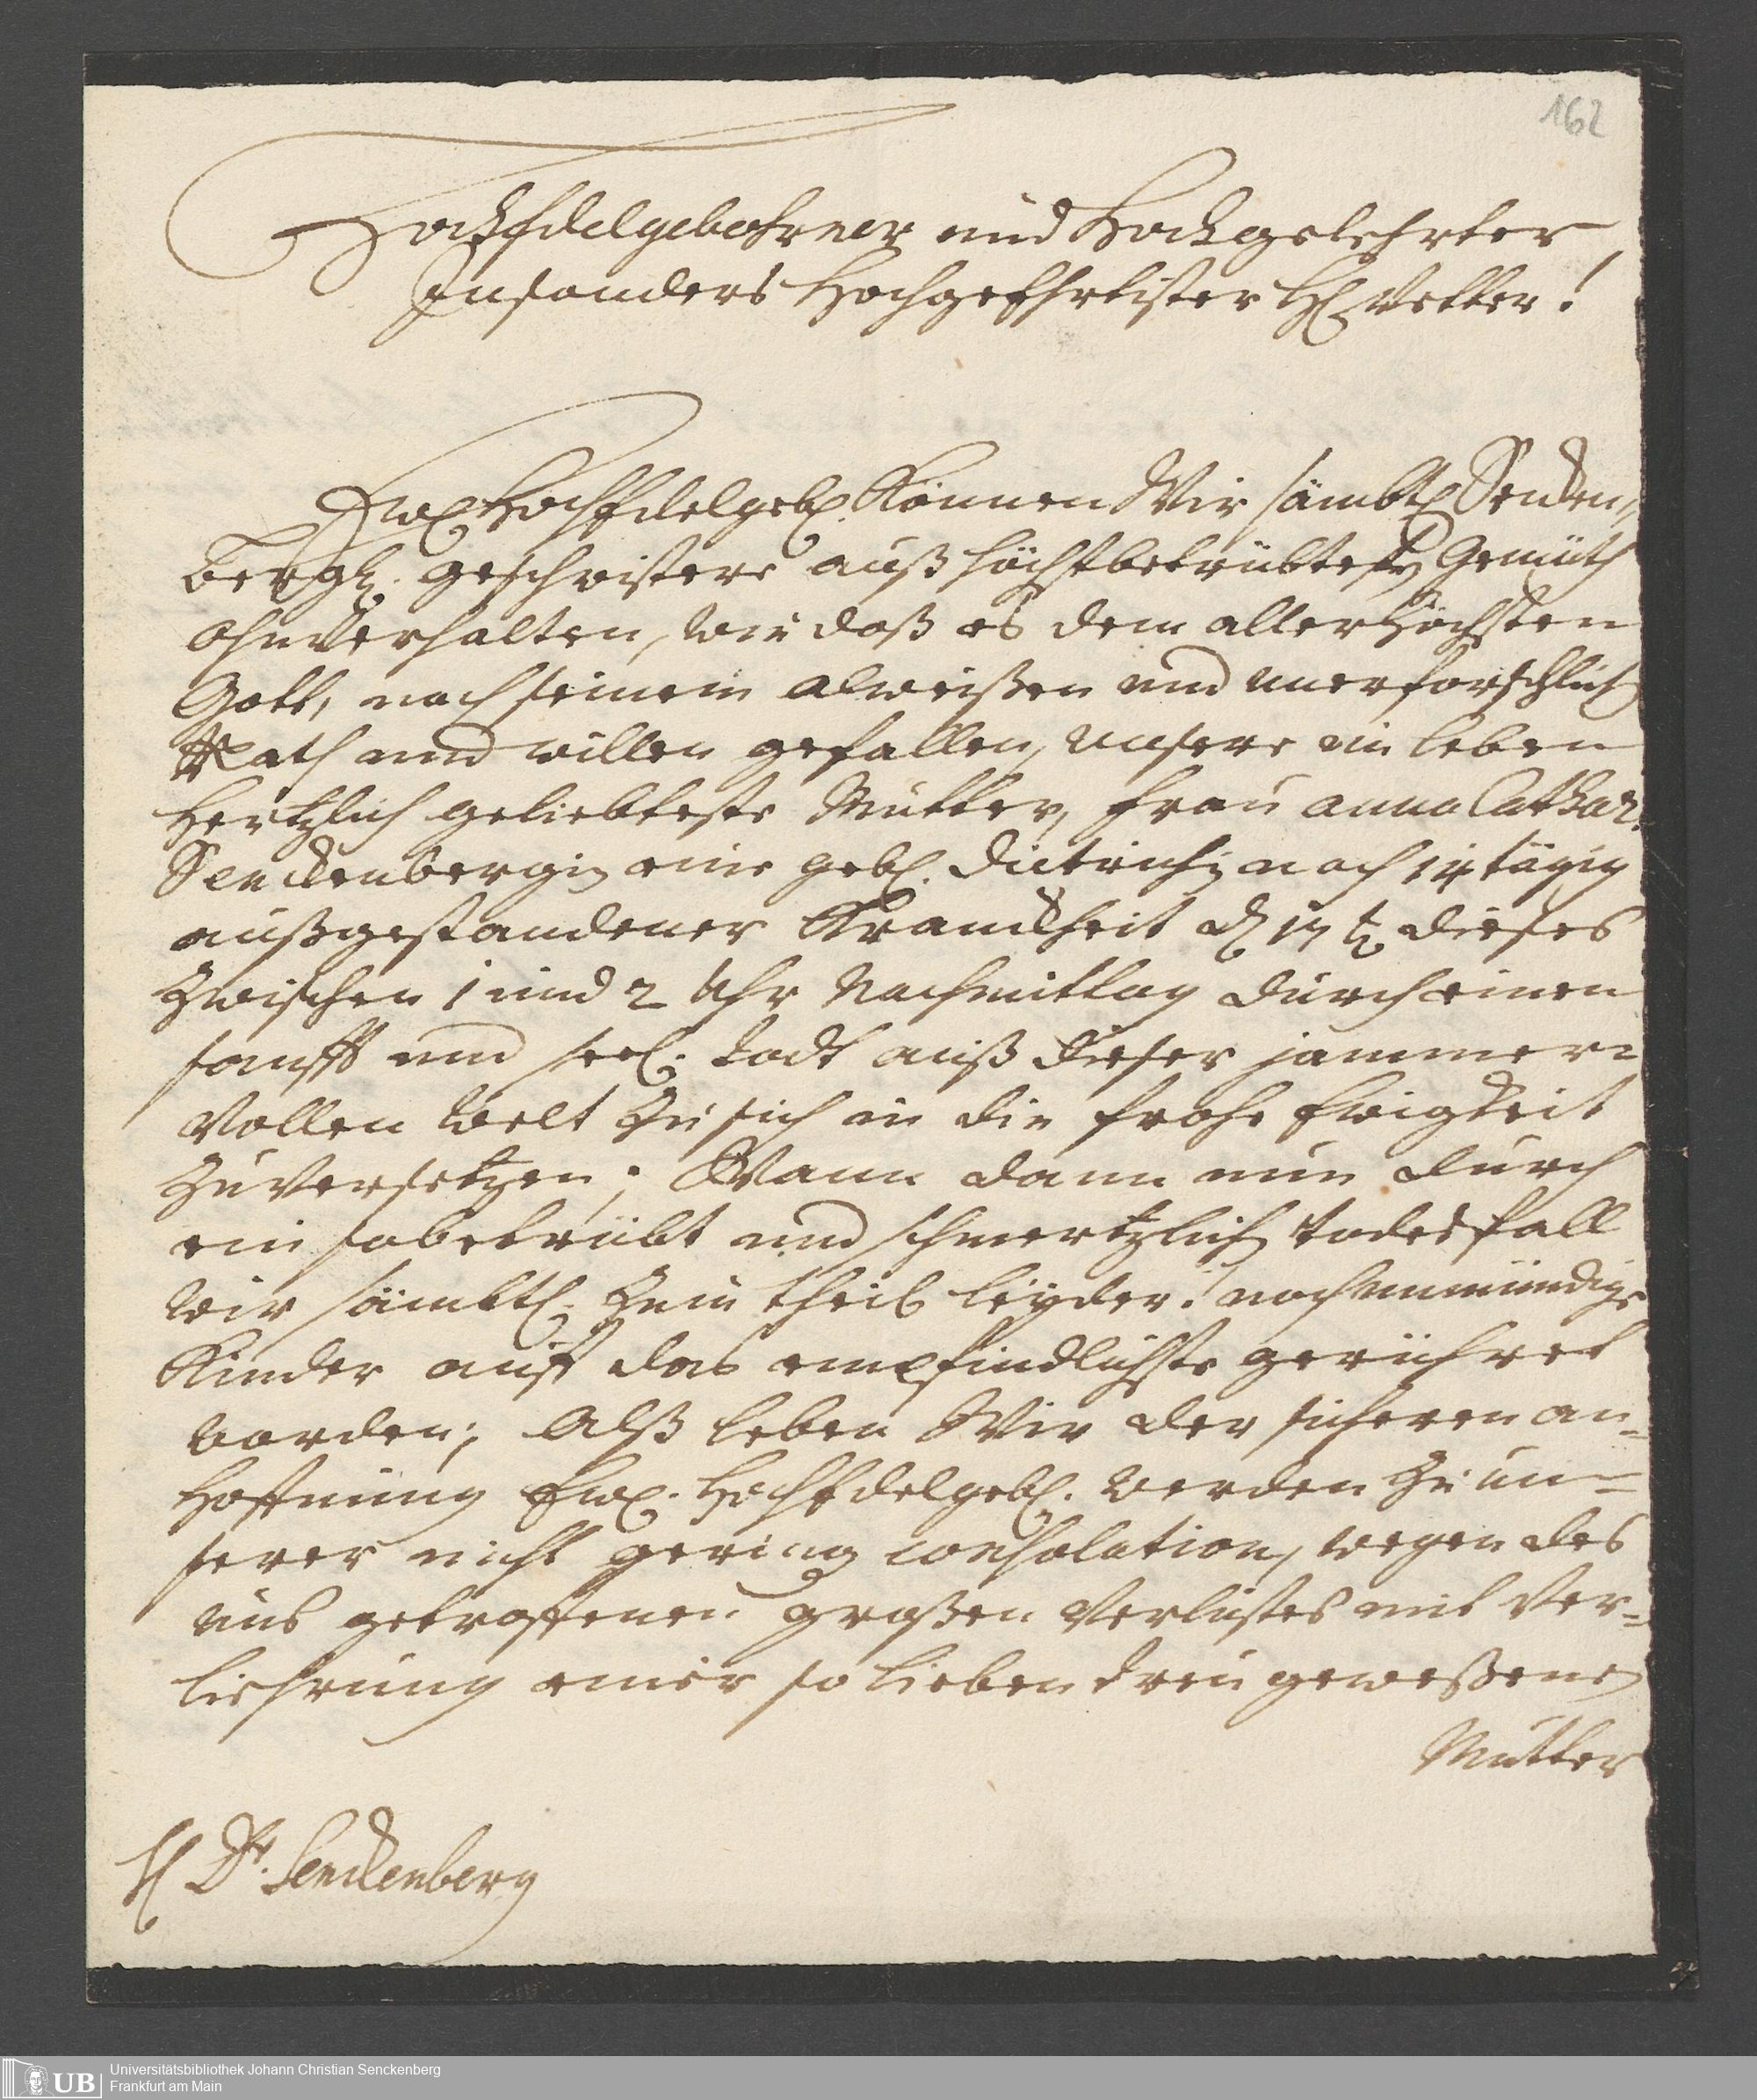 162
HochEdelgebohrner und Hochgelehrter,
Insonders HochgeEhrtister H. Vetter!
Ew. HochEdelgeb. Können Wir sämbtl. Sencken„
bergl. geschwistere auß höchstbetrübtesten Gemüth
ohnverhalten, wie daß es dem allerhöchsten
Gott, nach seinem alweißen und unerforschlich
Rath und willen gefallen, unsere im leben
Hertzlich geliebteste Mutter, Frau Anna Cathar.
Senckenbergin eine geb. Dietrichin nach 14 tägig
außgestandener Kranckheit d. 17 t. dieses
Zwischen 1 und 2 Uhr Nachmittag durch einen
sanfft und seel. todt auß dieser jammer=
vollen Welt Zu sich in die frohe Ewigkeit
Zu versetzen; Wann dann nun durch
ein so betrübt und schmertzlich todesfall
Wir sämbtl. Zum theil leyder! noch unmündige
Kinder auff das empfindlichste gerühret
worden; Alß leben Wir der sicheren an=
Hoffnung Ew. HochEdelgeb. werden Zu un=
serer nicht gering consolation, wegen des
uns getroffenen großen Verlustes mit Ver=
liehrung einer so lieben treu geweßenen
Mutter
H Dr. Senckenberg
UB
Universitätsbibliothek Johann Christian Senckenberg
Frankfurt am Main